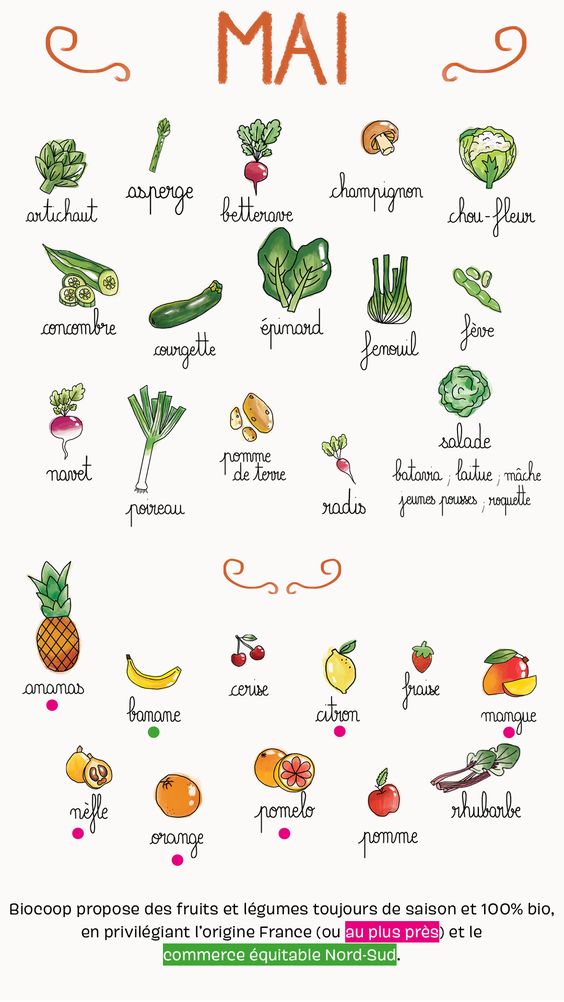 MAI
artichaut
asperge
betterave
champignon
chou-fleur
concombre
courgette
épinard
fenouil
fève
navet
poireau
pomme
de terre
radis
salade
batavia ; laitue ; mâche
jeunes pousses ; roquette
ananas
banane
cerise
citron
fraise
mangue
nèfle
orange
pomelo
pomme
rhubarbe
Biocoop propose des fruits et légumes toujours de saison et 100% bio,
en privilégiant l'origine France (ou au plus près) et le
commerce équitable Nord-Sud.